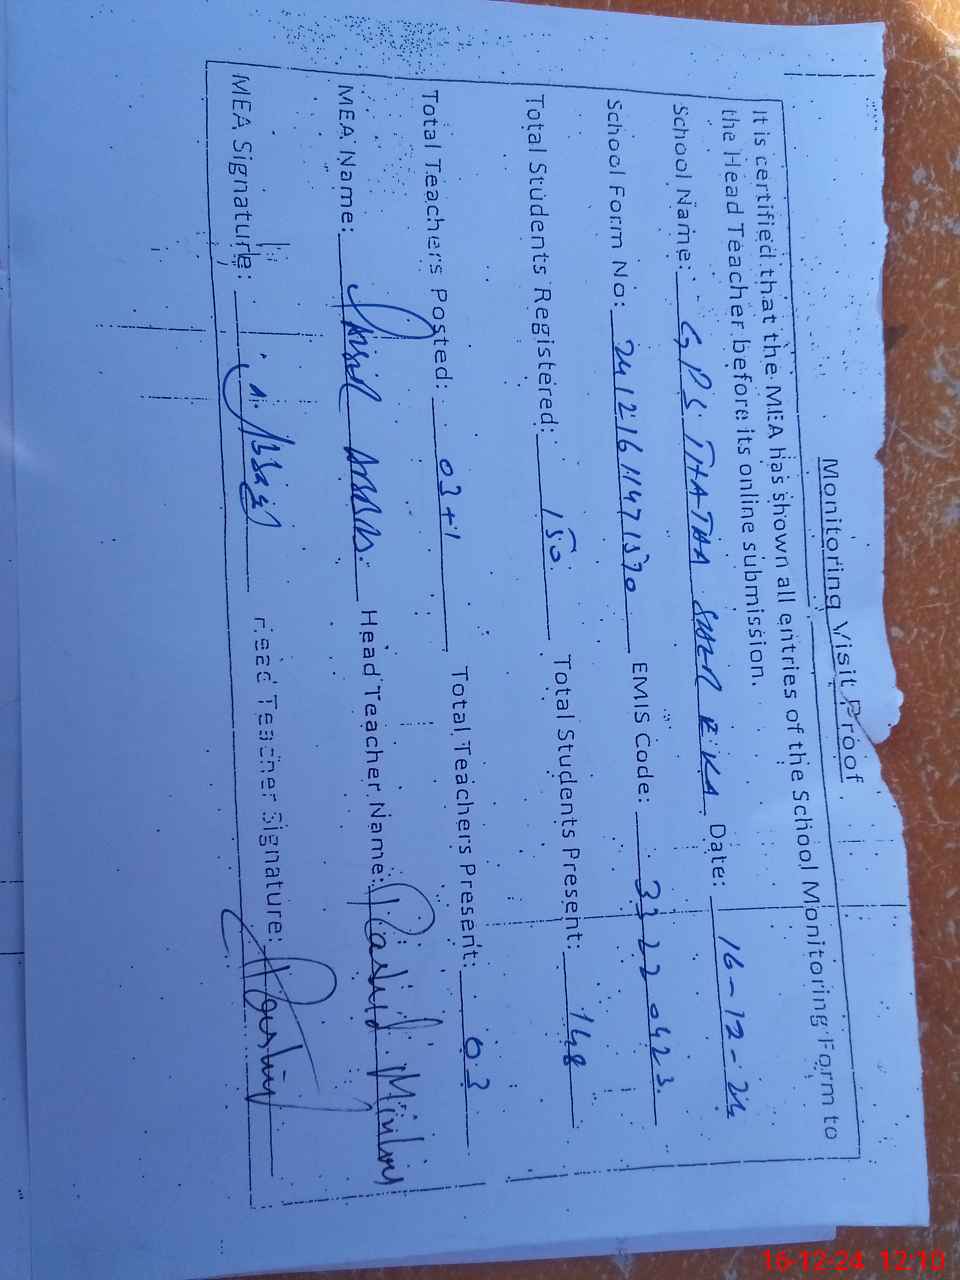 Monitoring Visit Proof
It is certified that the MEA has shown all entries of the School Monitoring Form to
the Head Teacher before its online submission.
School Name: GPS THATHA Date: 16-12-24
School Form No: EMIS Code: 33220423
Total Students Registered: 150 Total Students Present: 148
Total Teachers Posted: 03+1 Total Teachers Present: 03
MEA Name: Head Teacher Name: Rashid Minhas
MEA Signature: A. Abbas Head Teacher Signature:
16-12-24 12:10